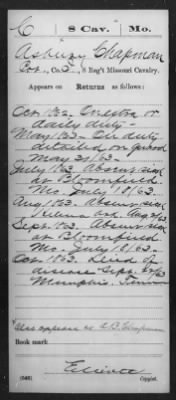 C 8 Cav. Mo.
Asbury Chapman
Co. C, 8 Reg't Missouri Cavalry.
Appears on
Returns as follows:
Oct 1862.
daily duty -
May 1863 - On duty
detailed on guard
May 30/63.
July 1863. Absent sick
at Bloomfield
Mo. July 18/63.
Aug. 1863. Absent sick
Helena Ark Aug 21/63
Sept. 1863. Absent sick
at Bloomfield
Mo. July 18/63.
Oct 1863. Died of
disease Sept.
Memphis, Tenn
Also appears as A.B. Chapman
Book mark:
(546) Copist.